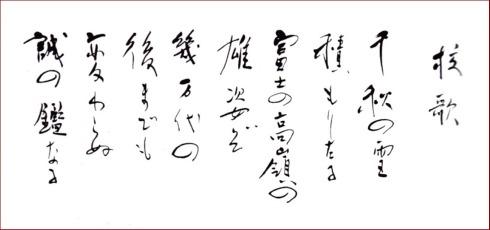 校歌
千秋の雪
積もりたる
富士の高嶺の
雄姿ぞ
幾万代の
後までも
変わらぬ
誠の鑑なる